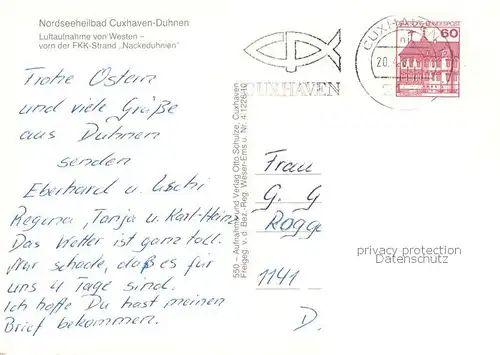 Nordseeheilbad Cuxhaven-Duhnen
Luftaufnahme von Westen –
vorn der FKK-Strand „Nackeduhnien"
Frohe Ostern
und viele Grüße
aus Duhnen
senden
Eberhard u. Uschi
Regina, Tanja u. Karl-Heinz
Das Wetter ist ganz toll.
Nur schade, daß es für
uns 4 Tage sind.
Ich hoffe Du hast meinen
Brief bekommen.
550 – Aufnahme und Verlag Otto Schulze, Cuxhaven
Freigeg. v. d. Bez.-Reg. Weser-Ems u. Nr. 4/1226/10
CUXHAVEN
CUXHAVEN
20.4.
60
Frau
G. G
Rogge
1141
D.
privacy protection
Datenschutz